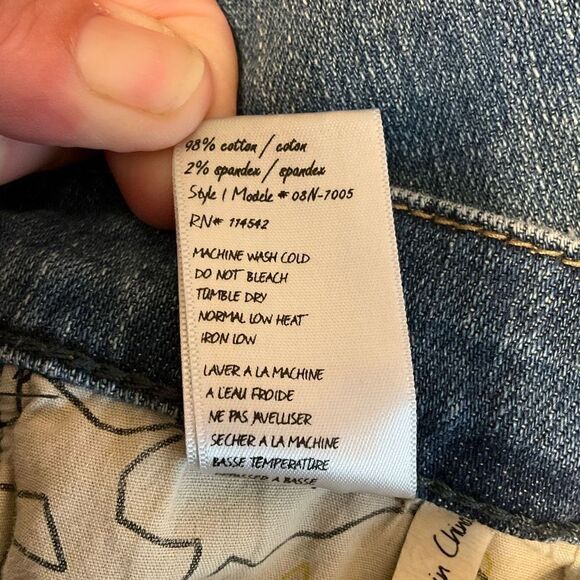 98% cotton / coton
2% spandex / spandex
Style / Modele # 08N-7005
RN# 114542
MACHINE WASH COLD
DO NOT BLEACH
TUMBLE DRY
NORMAL LOW HEAT
IRON LOW
LAVER A LA MACHINE
A L'EAU FROIDE
NE PAS JAVELLISER
SECHER A LA MACHINE
BASSE TEMPERATURE
A BASSE
in